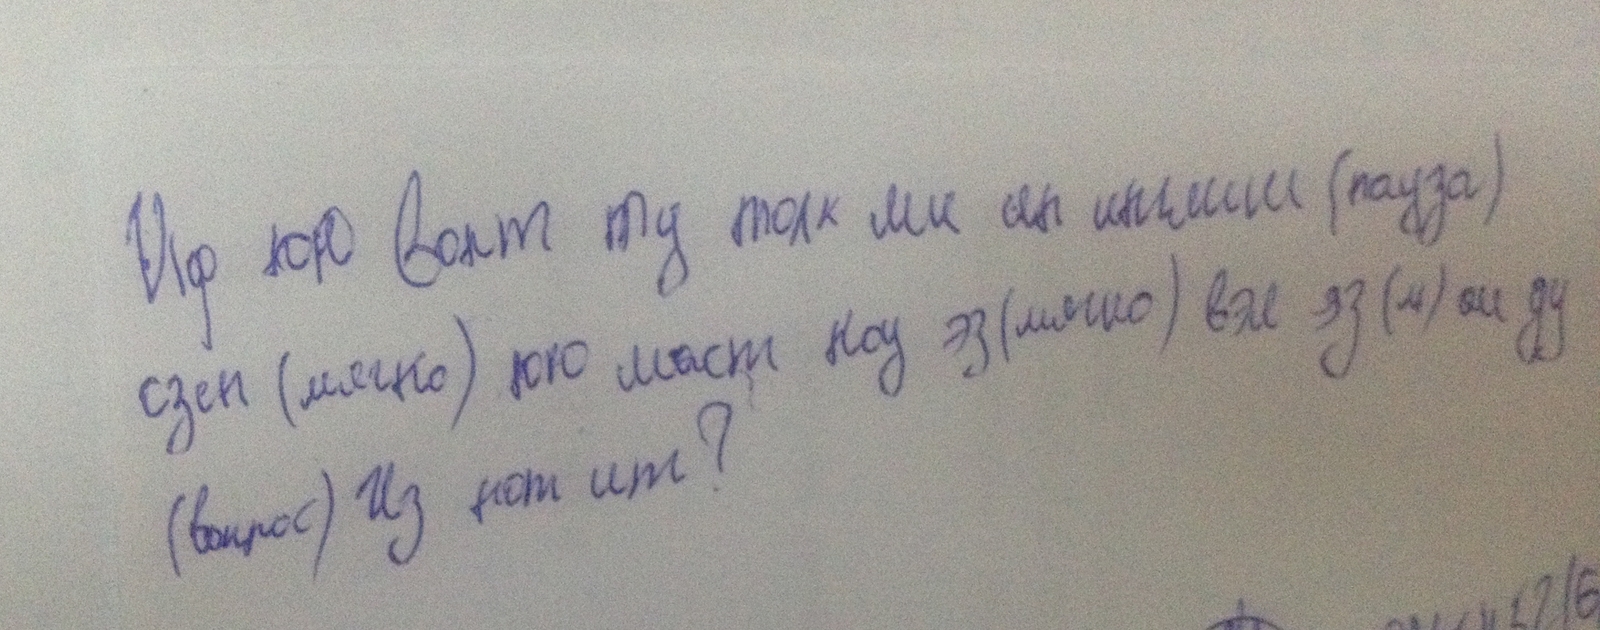 Иф юю вонт ту толк ми ан инглиш (пауза)
сзен (мягко) юю маст ноу эз (мягко) вэл эз (м) аи ду
(вопрос) Из нот ит?